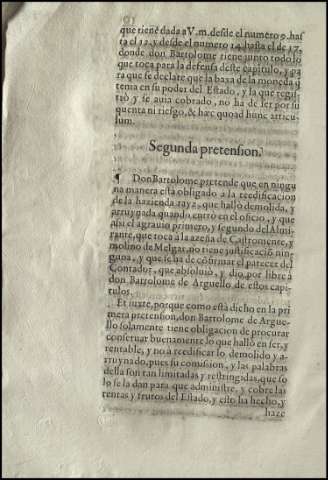 que tiene dada a V. m. desde el numero 9. has
ta el 12. y desde el numero 14. hasta el de 17.
donde don Bartolome tiene junto todo lo
que toca para la defensa deste capitulo, y pa
ra que se declare que la baxa de la moneda q̃
tenia en su poder del Estado, y la que regis-
trò y se auia cobrado, no ha de ser por su
quenta ni riesgo, & hæc quoad hunc articu-
lum.
Segunda pretension.
¶ Don Bartolome pretende que en ningu
na manera està obligado a la reedificacion
de la hazienda rayz, que hallò demolida, y
arruynada quando entrò en el oficio, y que
assi el agrauio primero, y segundo del Almi
rante, que toca a la azeña de Castromente, y
molino de Melgar, no tiene justificacion nin
guna, y que se ha de cõfirmar el parecer del
Contador, que absoluiò, y dio por libre à
don Bartolome de Arguello de estos capi-
tulos.
Et iuxte, porque como està dicho en la pri
mera pretension, don Bartolome de Argue-
llo solamente tiene obligacion de procurar
conseruar buenamente lo que hallò en ser, y
arentable, y no à reedificar lo demolido y a-
rruynado, pues su comission, y las palabras
della son tan limitadas y restringidas, que so
lo se la dan para que administre, y cobre las
rentas y frutos del Estado, y esto ha hecho, y
haze